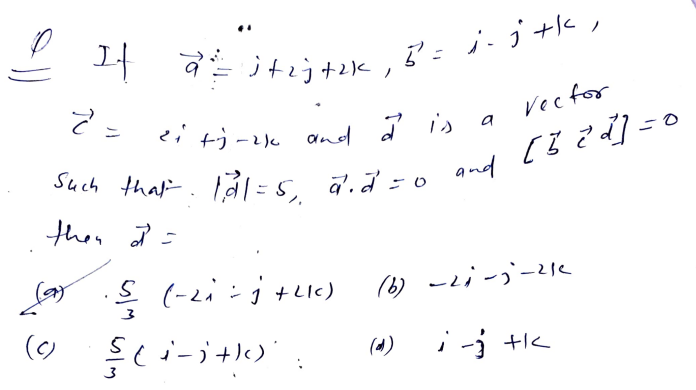 Q If a⃗ = i+2j+2k, b⃗ = i-j+k,
c⃗ = 2i+j-2k and d⃗ is a vector
such that |d⃗|=5, a⃗.d⃗=0 and [b⃗ c⃗ d⃗]=0
then d⃗ =
(a) 5/3 (-2i-j+2k) (b) -2i-j-2k
(c) 5/3 (i-j+k) (d) i-j+k